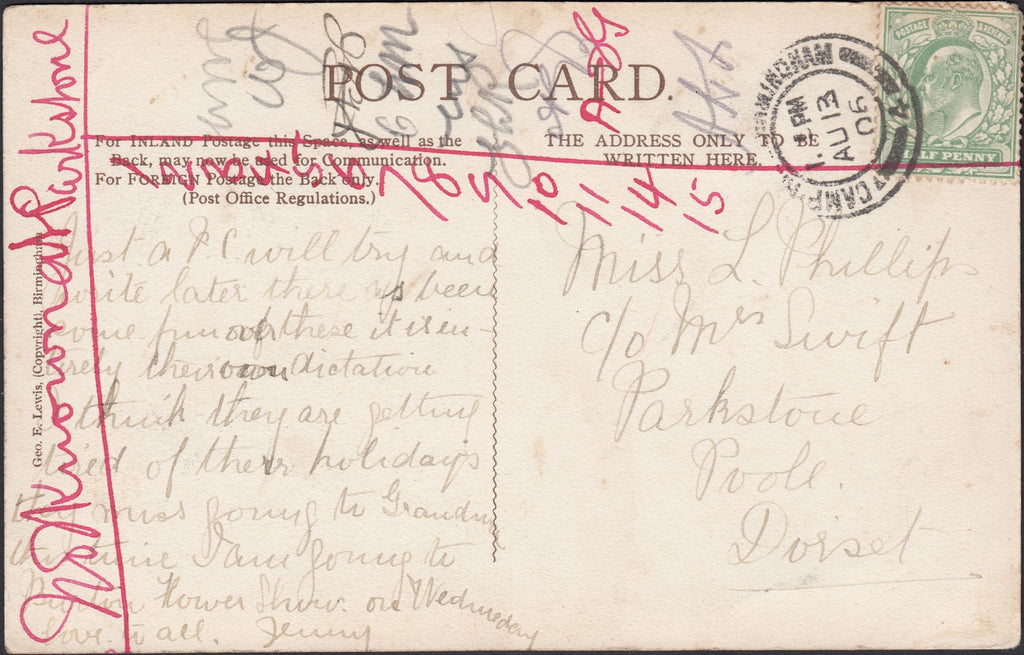 POST CARD.
For INLAND Postage this Space, as well as the
Back, may now be used for Communication.
For FOREIGN Postage the Back only.
(Post Office Regulations.)
THE ADDRESS ONLY TO BE
WRITTEN HERE.
POSTAGE
HALF PENNY
BIRMINGHAM
1. PM
AU 13
06
CAMP
Geo. E. Lewis, (Copyright), Birmingham
Not Known at Parkstone
7 8 9 10 11 14 15
Just a P.C will try and
write later there as been
some fun over these it is en-
tirely their own dictation
I think they are getting
tired of their holidays
they miss going to Grandma
this time I am going to
Flower Show. on Wednesday
love to all. Jenny
Miss L Phillips
c/o Mrs Swift
Parkstone
Poole.
Dorset